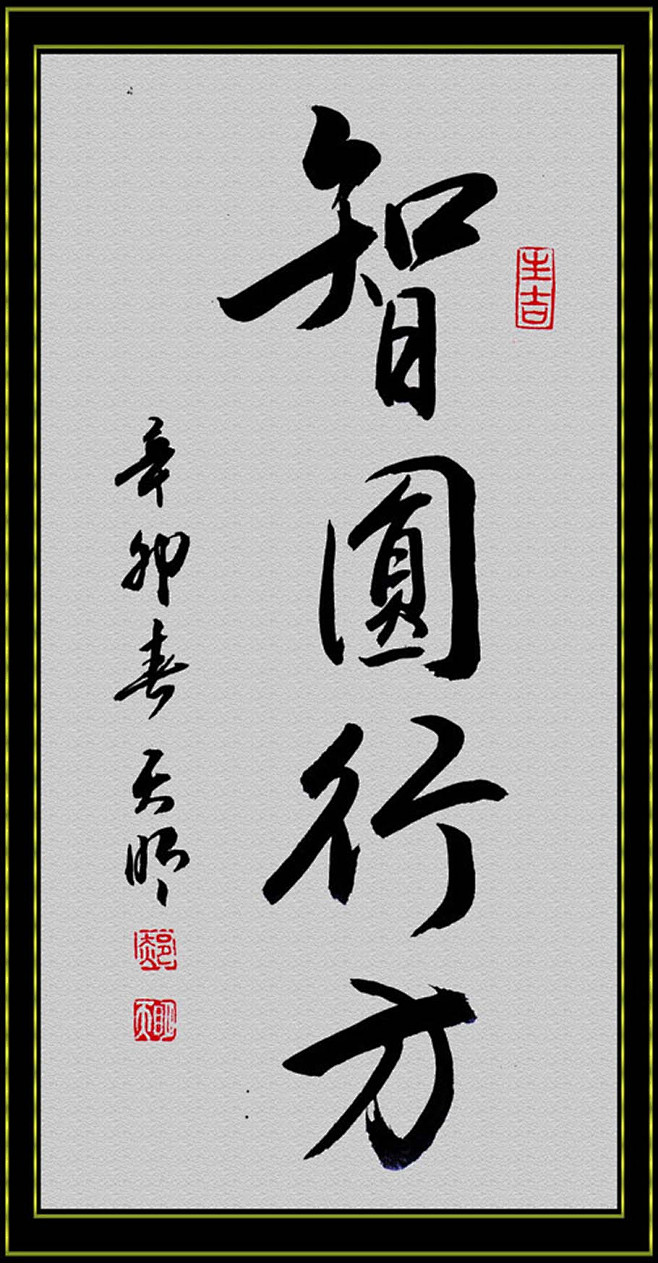 智圓行方
辛卯春天明
天明